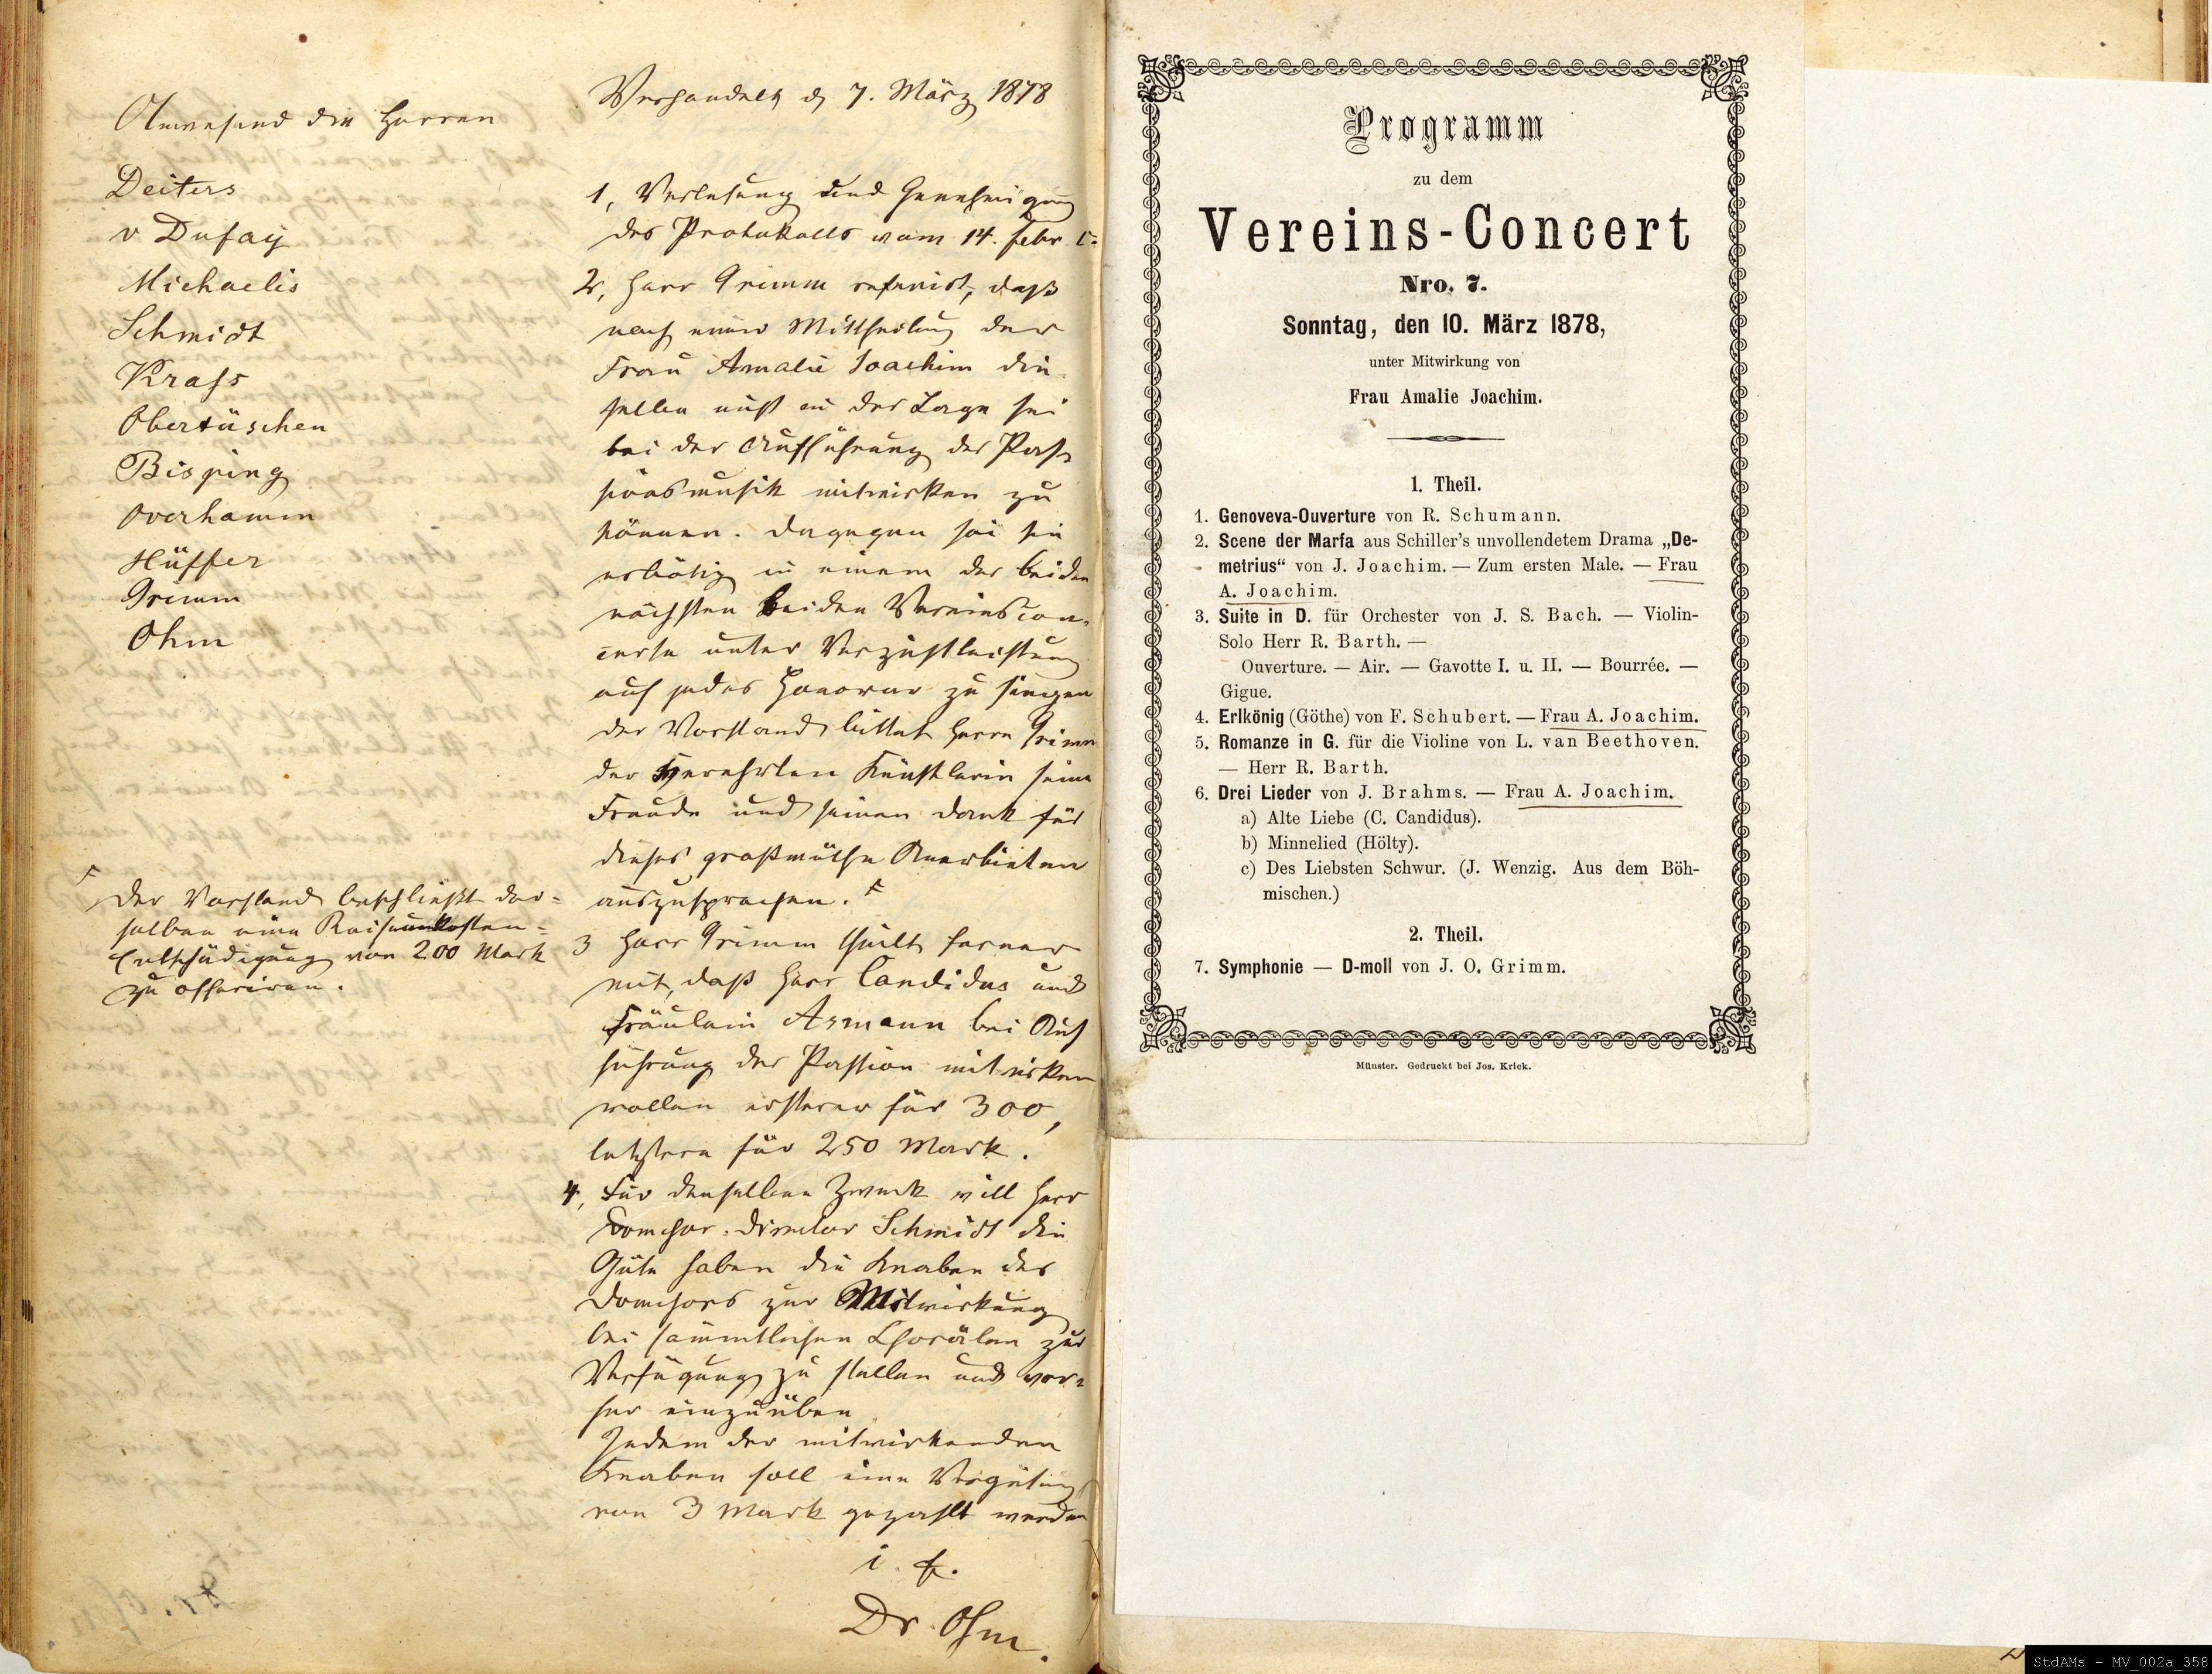 Anwesend die Herren
Deiters
v Dufay
Michaelis
Schmidt
Krass
Obertüschen
Bisping
Overhamm
Hüffer
Grimm
Ohm
Verhandelt d 7. März 1878
1, Verlesung und Genehmigung
des Protokolls vom 14. Febr. c.
2, Herr Grimm referirt, daß
nach einer Mittheilung der
Frau Amalie Joachim die
selbe nicht in der Lage sei
bei der Aufführung der Pas
sionsmusik mitwirken zu
können. Dagegen sei sie
erbötig in einem der beiden
nächsten beiden Vereinscon-
certe unter Verzichtleistung
auf jedes Honorar zu singen
der Vorstand bittet Herrn Grimm
der verehrten Künstlerin seine
Freude und seinen Dank für
dieses großmüthe Anerbieten
auszusprechen. F
F
Der Vorstand beschließt der-
selben eine Reiseunkosten-
Entschädigung von 200 Mark
zu offeriren.
3 Herr Grimm theilt ferner
mit, daß Herr Candidus und
Fräulein Asmann bei Auf
führung der Passion mitwirken
wollen ersterer für 300,
letztere für 250 Mark.
4, Für denselben Zweck will Herr
Domchor-Direktor Schmidt die
Güte haben die Knaben des
Domchors zur Mitwirkung
bei sämmtlichen Chorälen zur
Verfügung zu stellen und vor-
her einzuüben
Jedem der mitwirkenden
Knaben soll eine Vergütung
von 3 Mark gezahlt werden
i. f.
Dr Ohm.
Programm
zu dem
Vereins-Concert
Nro. 7.
Sonntag, den 10. März 1878,
unter Mitwirkung von
Frau Amalie Joachim.
1. Theil.
1. Genoveva-Ouverture von R. Schumann.
2. Scene der Marfa aus Schiller's unvollendetem Drama „De-
metrius“ von J. Joachim. — Zum ersten Male. — Frau
A. Joachim.
3. Suite in D. für Orchester von J. S. Bach. — Violin-
Solo Herr R. Barth. —
Ouverture. — Air. — Gavotte I. u. II. — Bourrée. —
Gigue.
4. Erlkönig (Göthe) von F. Schubert. — Frau A. Joachim.
5. Romanze in G. für die Violine von L. van Beethoven.
— Herr R. Barth.
6. Drei Lieder von J. Brahms. — Frau A. Joachim.
a) Alte Liebe (C. Candidus).
b) Minnelied (Hölty).
c) Des Liebsten Schwur. (J. Wenzig. Aus dem Böh-
mischen.)
2. Theil.
7. Symphonie — D-moll von J. O. Grimm.
Münster. Gedruckt bei Jos. Krick.
StdAMs - MV_002a_358